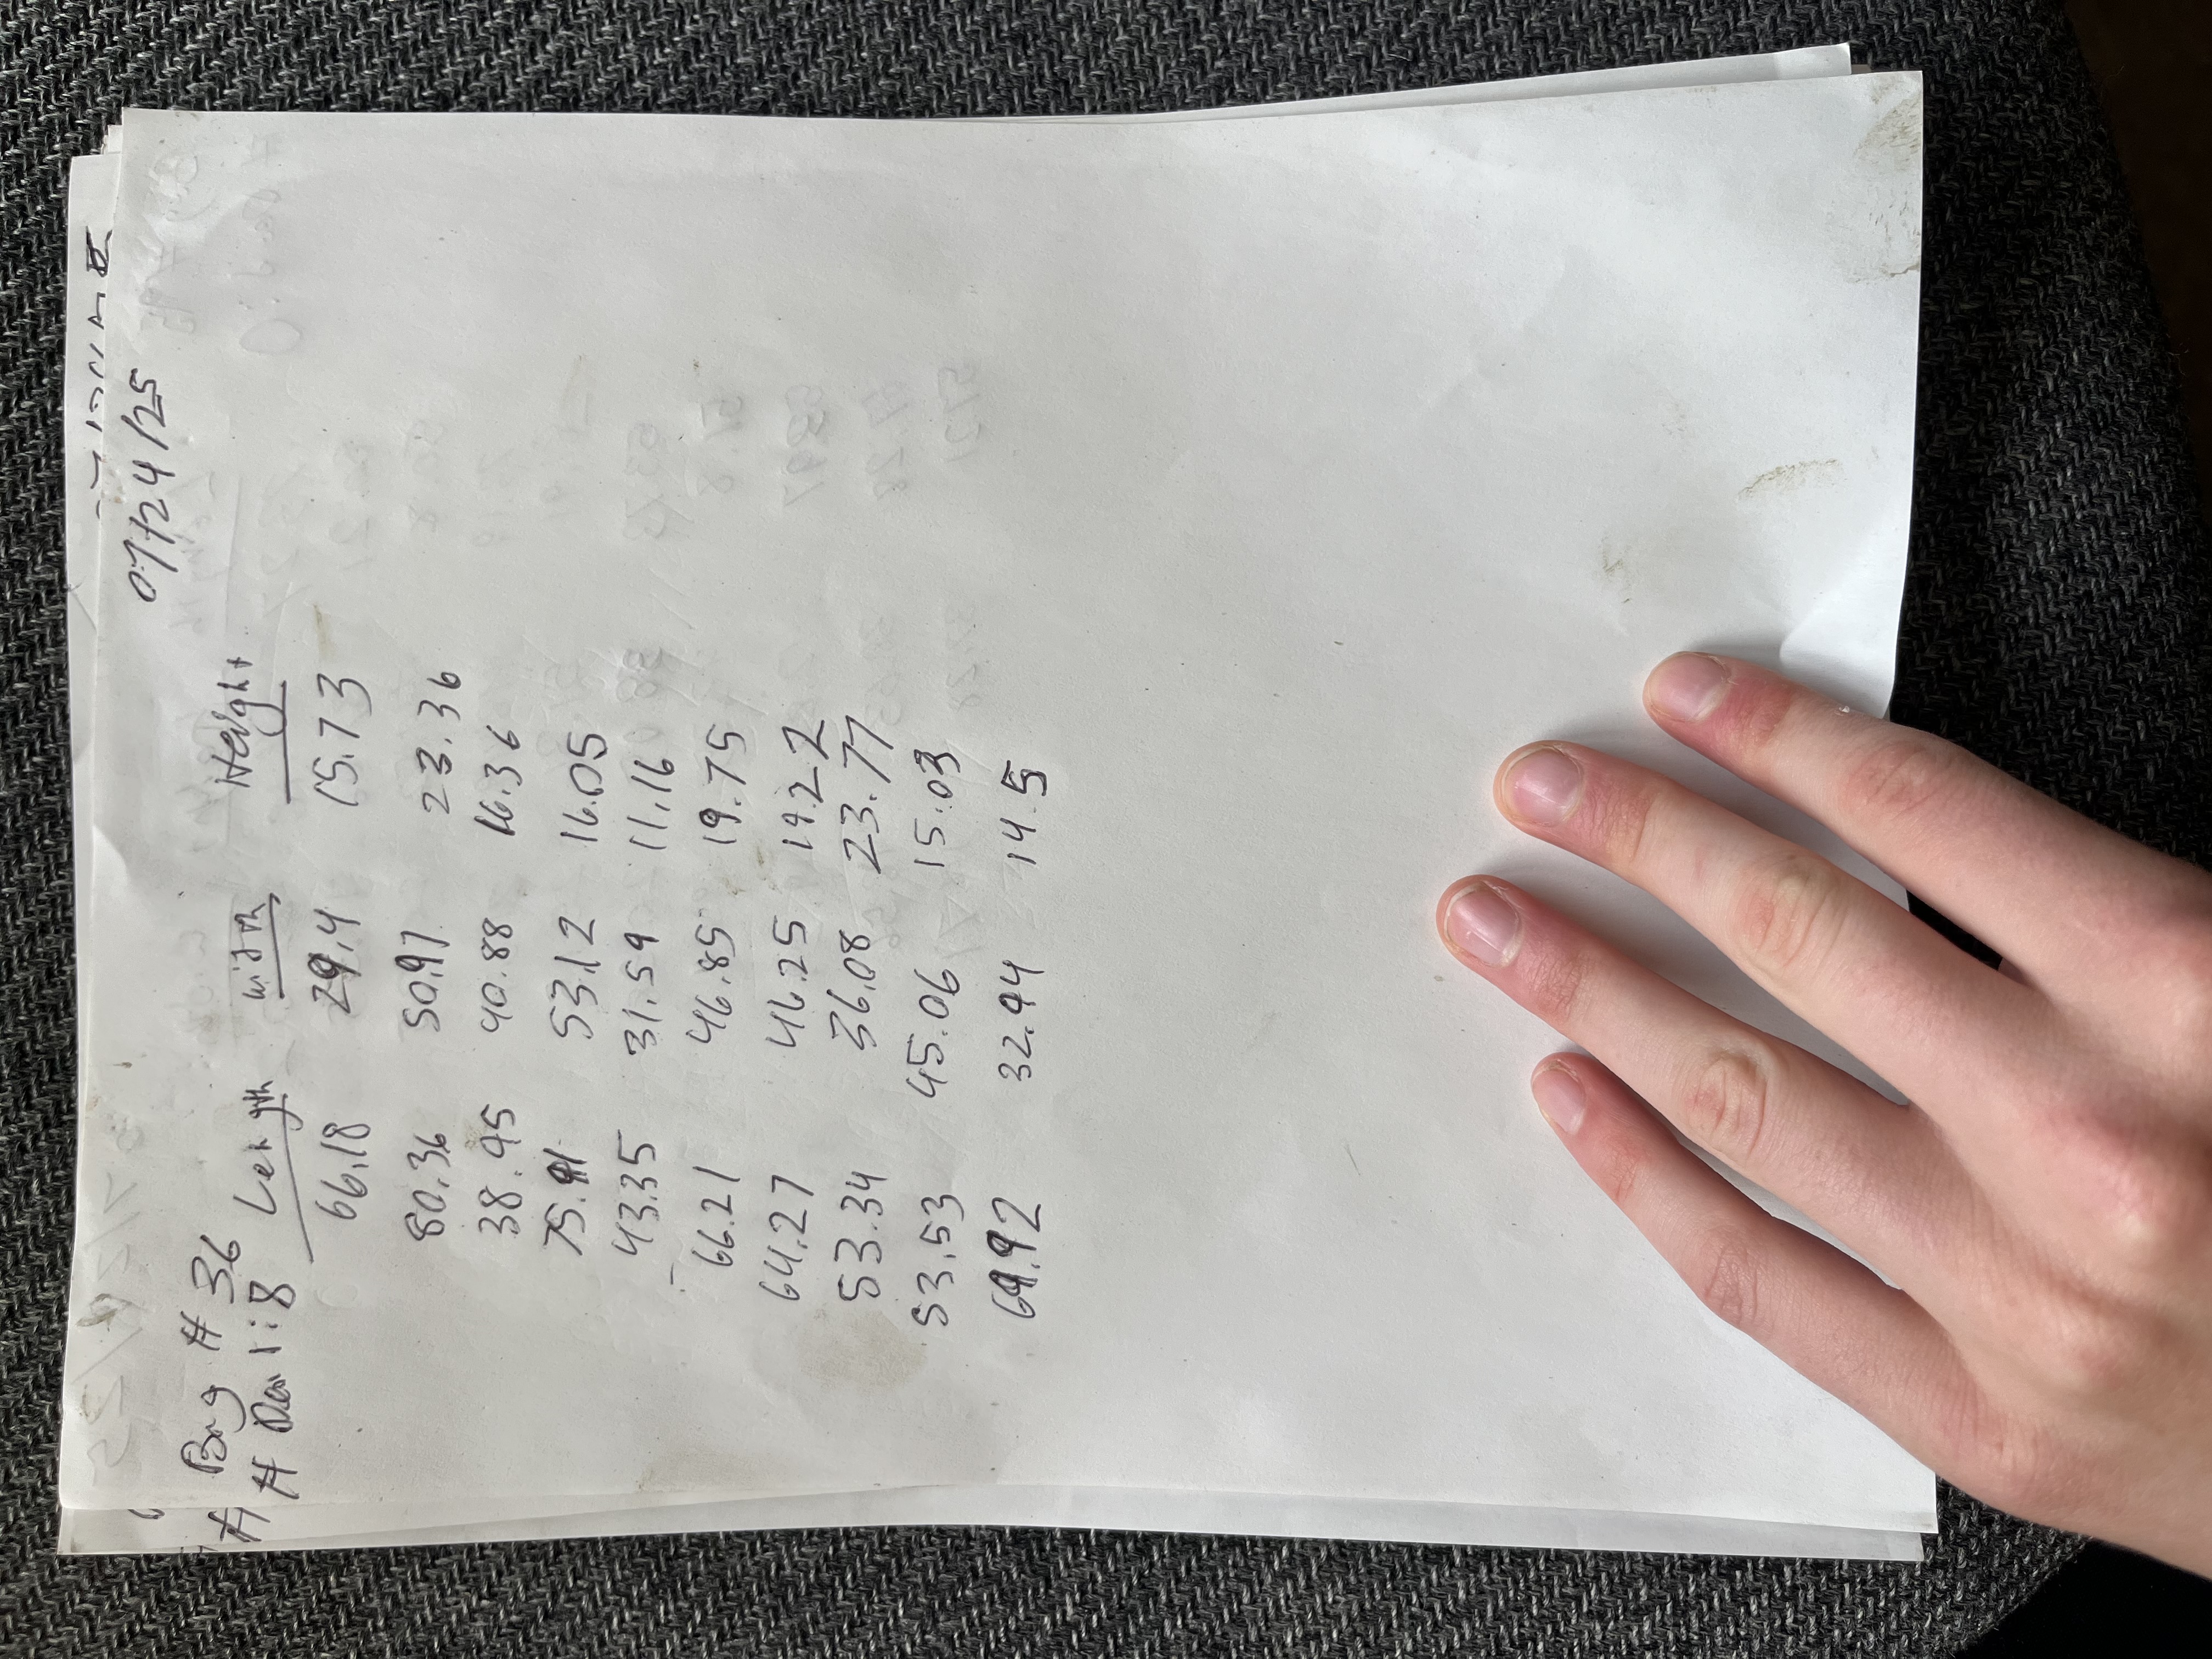 07/24/25
Bag # 36
# Dead: 8 Length width Height
66.18 29.4 15.73
80.36 50.97 23.36
38.95 40.88 16.36
75.91 53.12 16.05
43.35 31.59 11.16
66.21 46.85 19.75
64.27 46.25 19.22
53.34 36.08 23.77
53.53 45.06 15.03
69.92 32.94 14.5